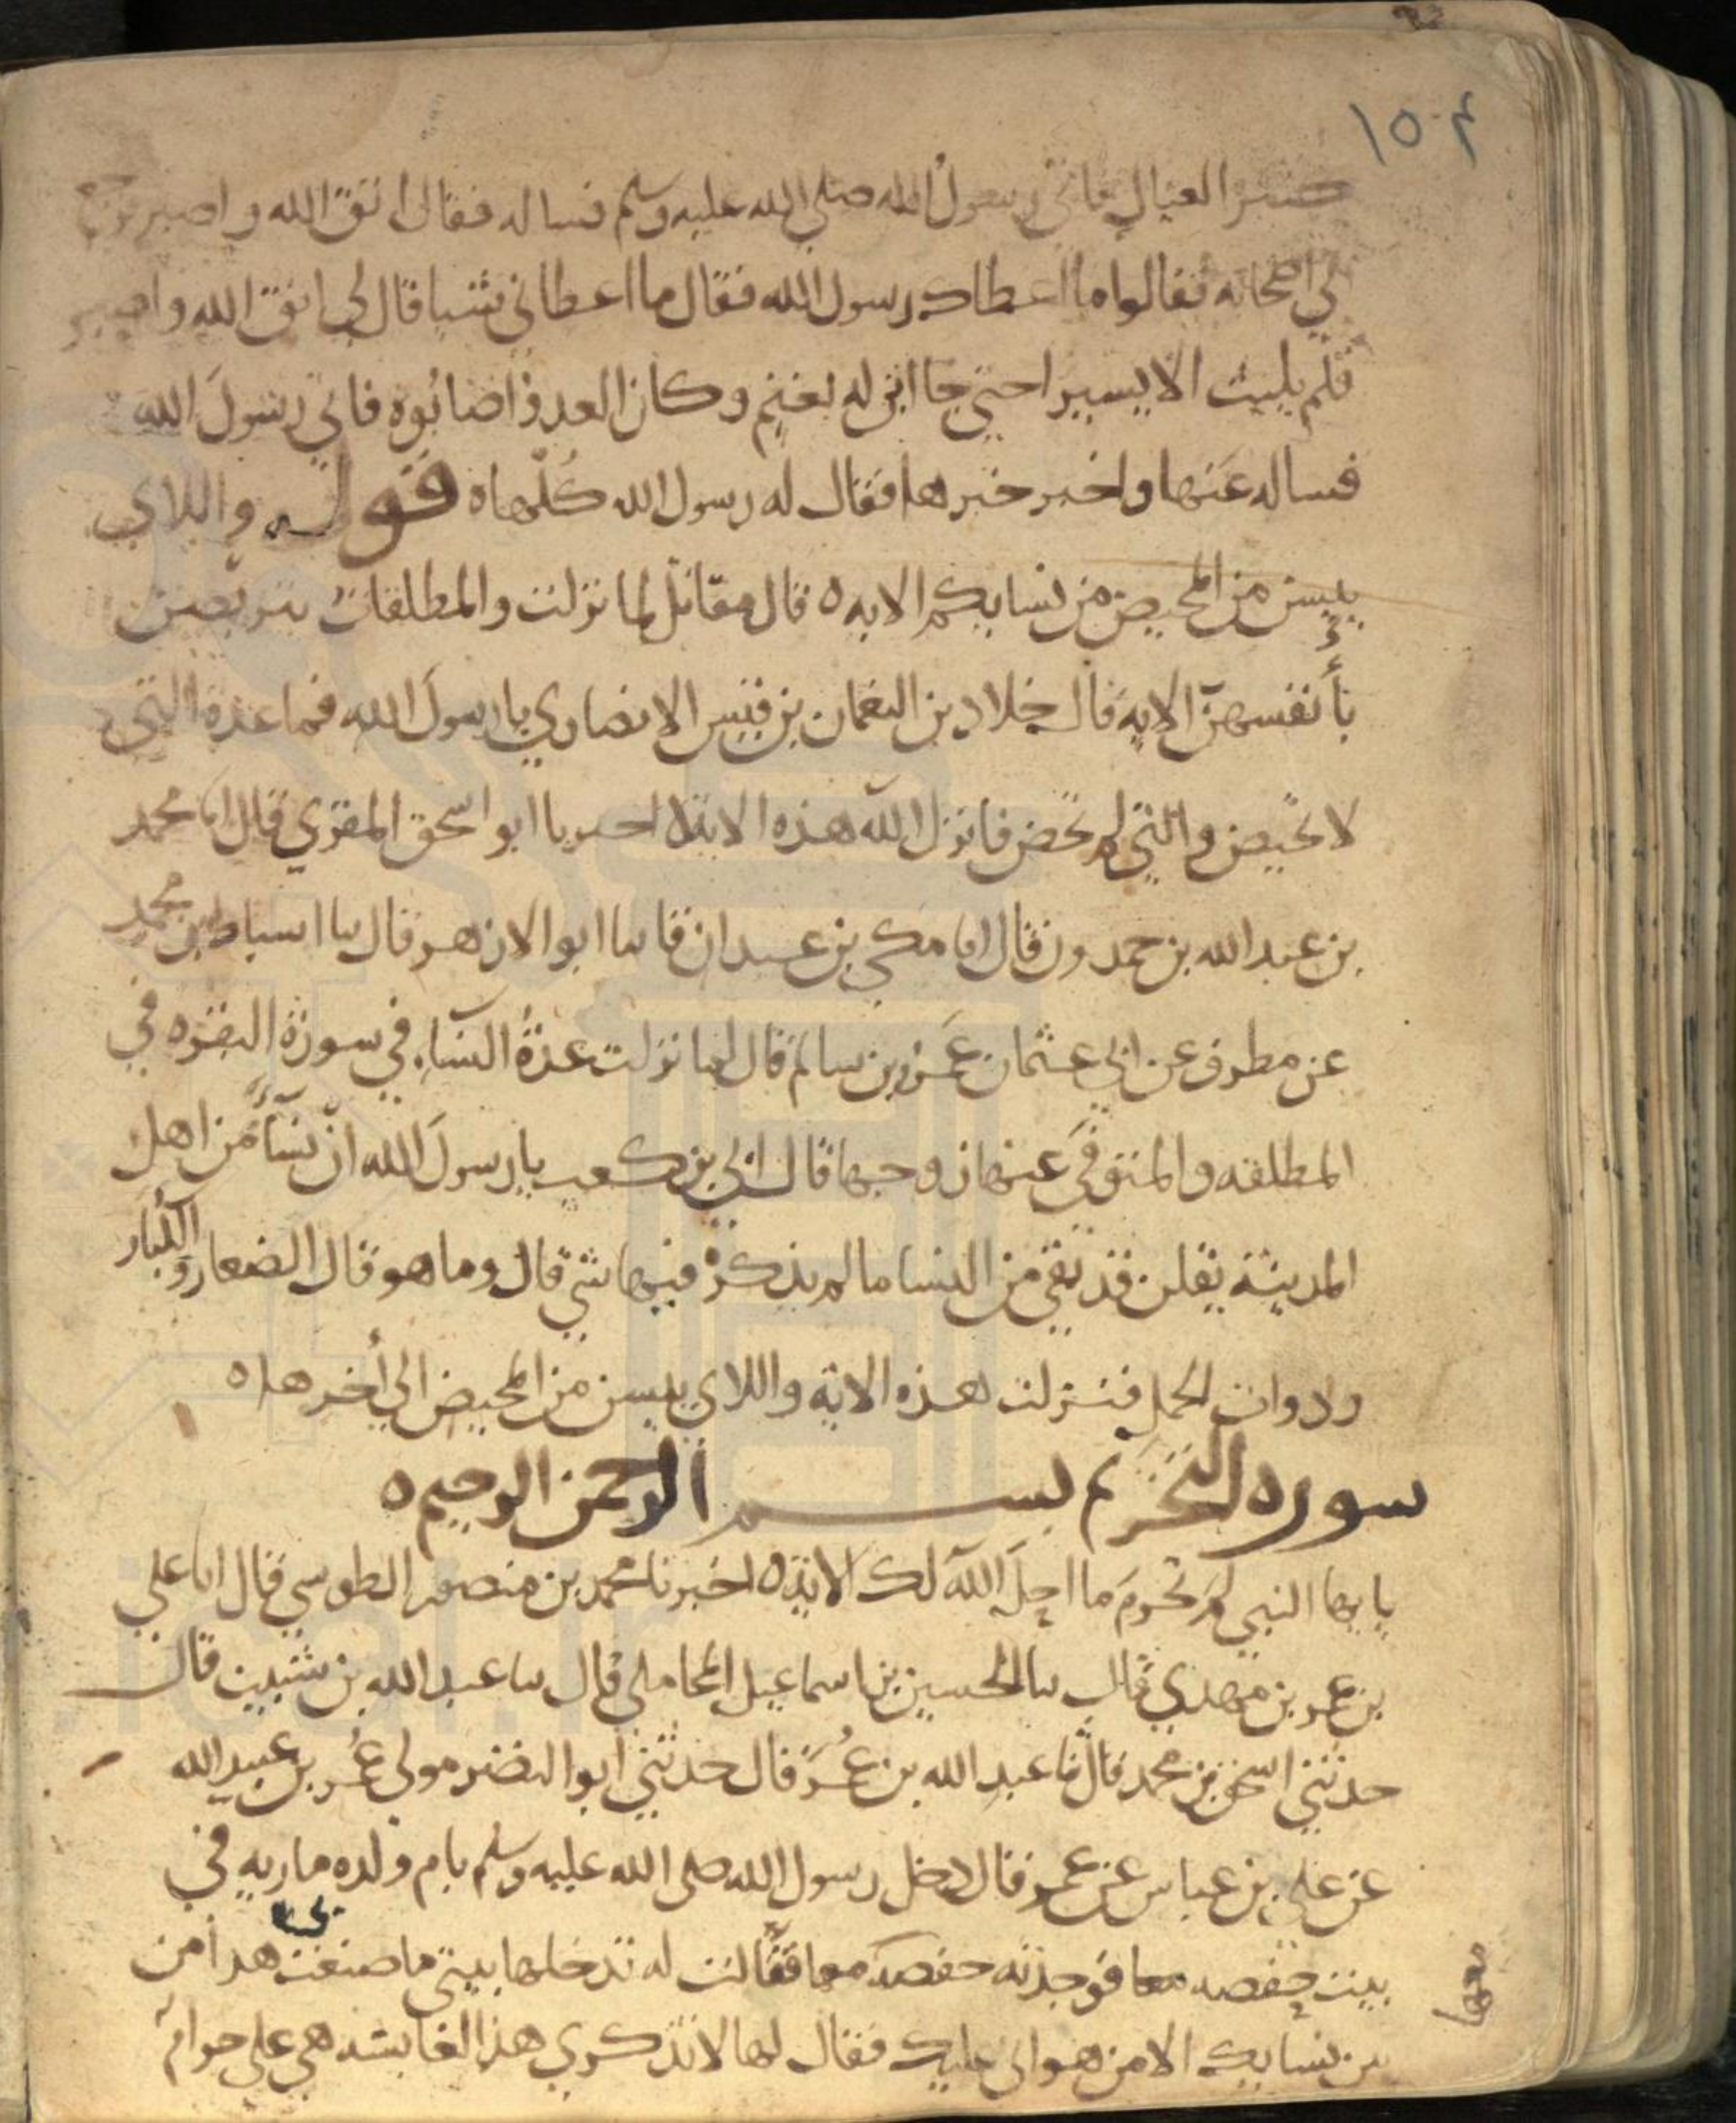 ١٥٢
كثير العيال فاتى رسول الله صلى الله عليه وسلم فساله فقال اتق الله واصبر فرجع
الى اصحابه فقالوا ما اعطاك رسول الله فقال ما اعطاني شيا قال لي اتق الله واصبر
فلم يلبث الا يسيرا حتى جا ابن له بغنم وكان العدو اصابوه فاتى رسول الله
فساله عنها واخبر خبرها فقال له رسول الله كلها ه قوله واللاي
يئسن من المحيض من نسايكم الايه ه قال مقاتل لما نزلت والمطلقات يتربصن
بأنفسهن الايه قال خلاد بن النعمان بن قيس الانصاري يا رسول الله فما عدة التي
لا تحيض والتي لم تحض فانزل الله هذه الاية ه اخبرنا ابو اسحق المقري قال انا محمد
بن عبد الله بن حمدون قال انا مكي بن عبدان قا ثنا ابو الازهر قال ثنا اسباط بن محمد
عن مطرف عن ابي عثمان عمرو بن سالم قال لما نزلت عدة النساء في سورة البقره في
المطلقه والمتوفى عنها زوجها قال ابي بن كعب يا رسول الله ان نساء من اهل
المدينة يقلن قد بقي من النسا ما لم يذكر فيها شي قال وما هو قال الصغار والكبار
وذوات الحمل فنزلت هذه الاية واللاي يئسن من المحيض الى أخرها ه
سوره التحريم بسم الرحمن الرحيم ه
يا يها النبي لم تحرم ما احل الله لك الاية ه اخبرنا محمد بن منصور الطوسي قال انا علي
بن عمر بن مهدي قال ثنا الحسين بن اسماعيل المحاملي قال ثنا عبد الله بن شبيب قال
حدثني اسحق بن محمد قال ثنا عبد الله بن عمر قال حدثني ابو النضر مولى عمر بن عبيد الله
عن علي بن عباس عن عمر قال دخل رسول الله صلى الله عليه وسلم بام ولده ماريه في
بيت حفصه فوجدته حفصه معها فقالت له تدخلها بيتي ما صنعت هذا من
بين نسايك الا من هواني عليك فقال لها لا تذكري هذا لعايشه هي علي حرام
معها